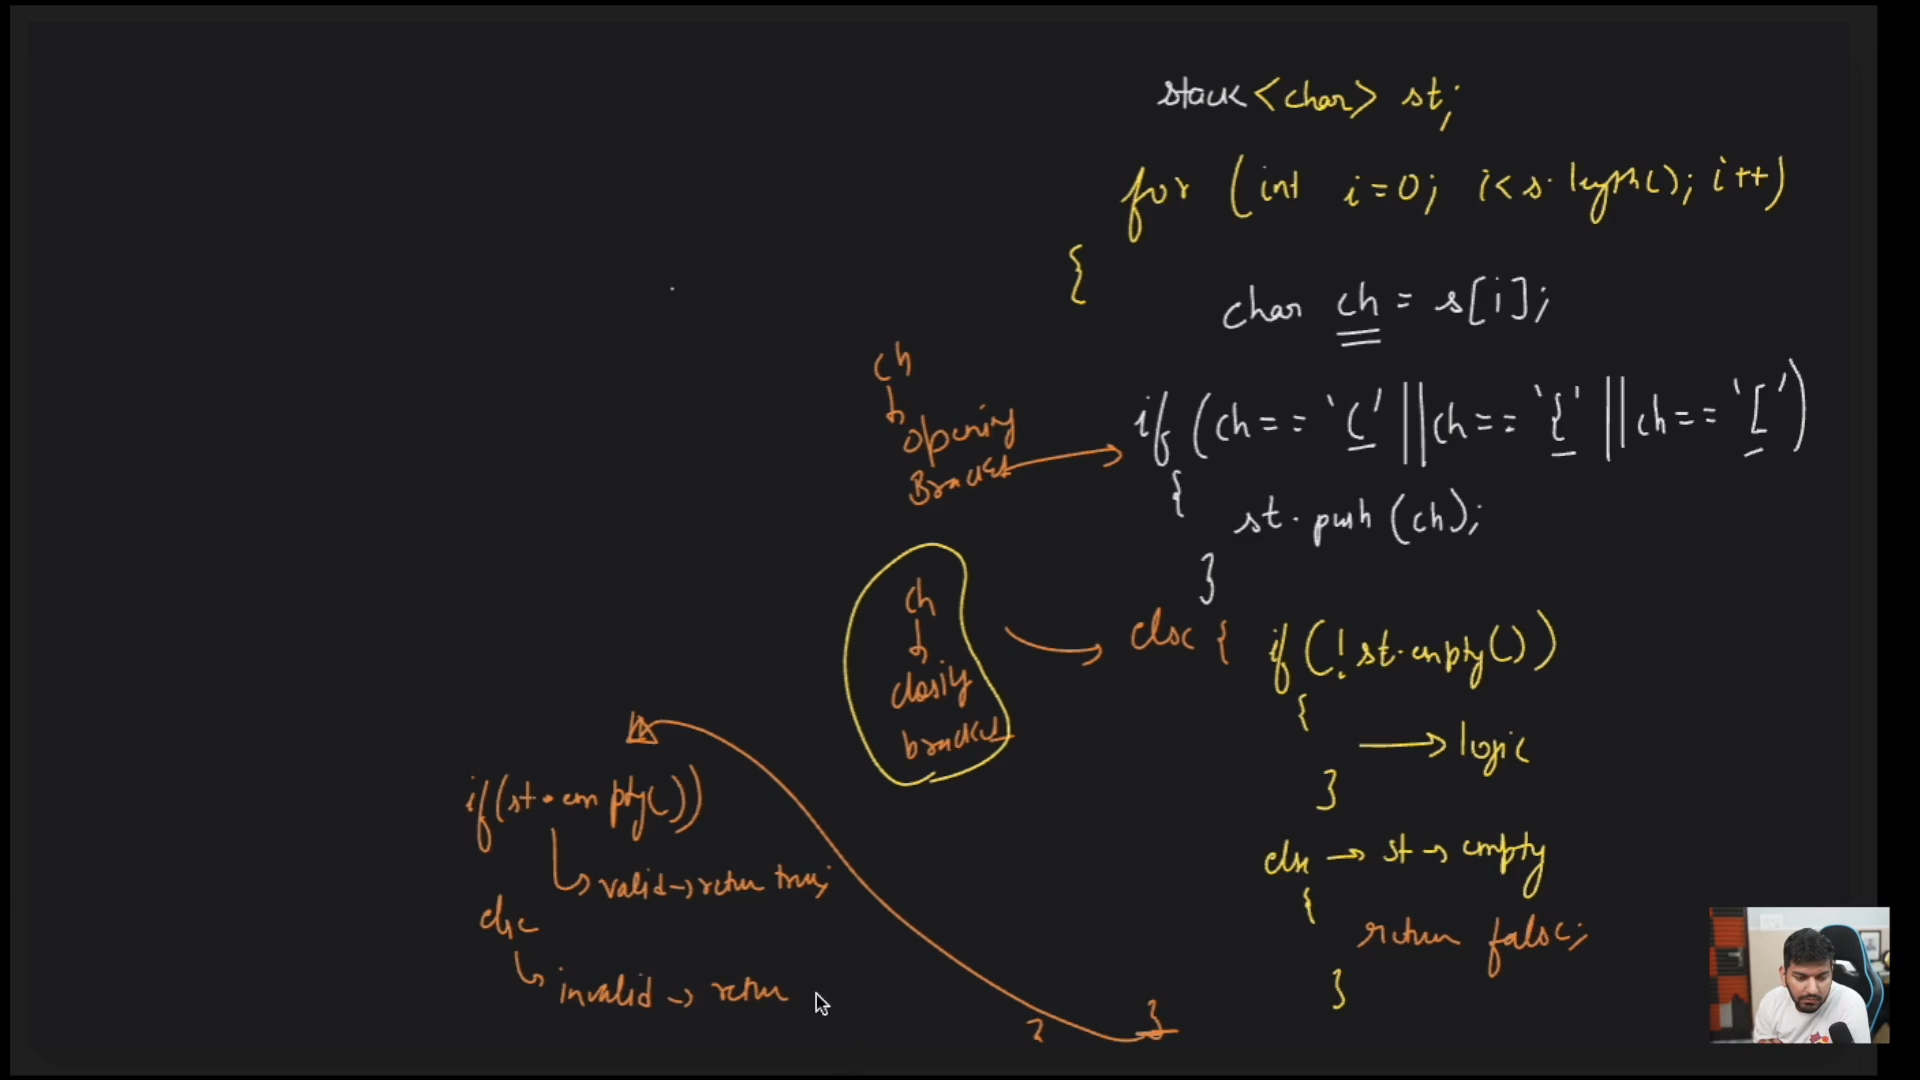 stack <char> st;
for (int i=0; i<s.length(); i++)
{
char ch = s[i];
ch
opening
Bracket
if (ch== '(' || ch== '{' || ch== '[')
{
st.push(ch);
}
ch
closing
bracket
else { if (!st.empty())
{
→ logic
}
else → st → empty
{
return false;
}
}
}
if(st.empty())
valid → return true;
else
invalid → return